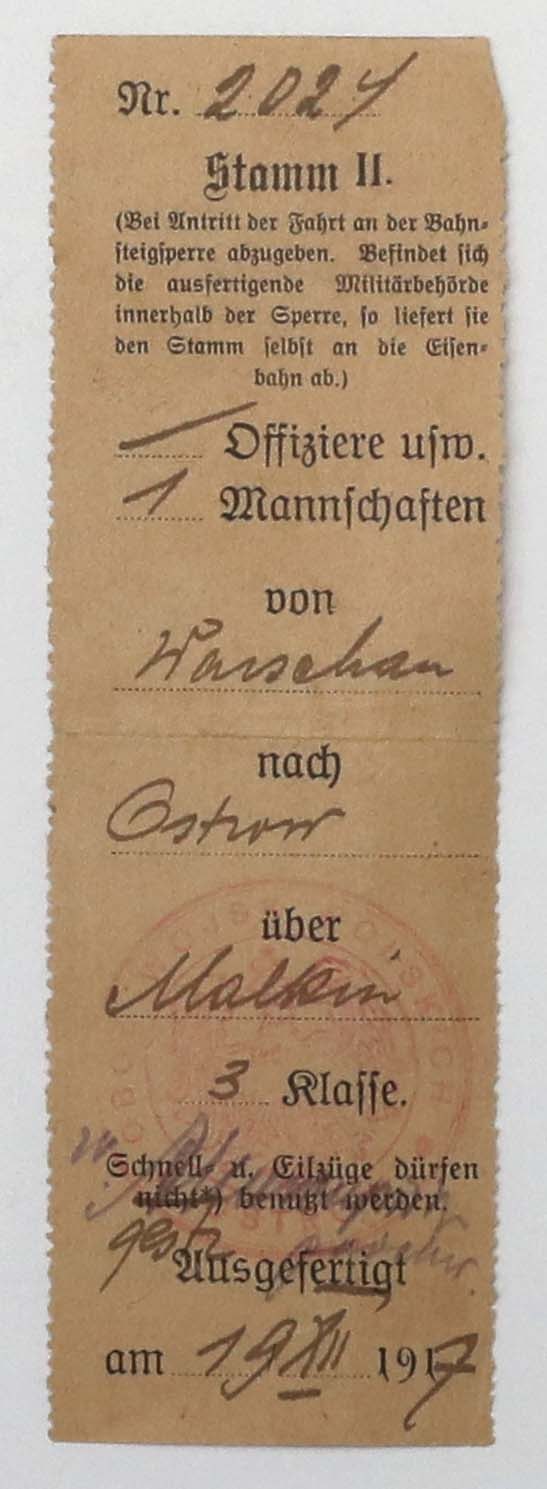 Nr. 2024
Stamm II.
(Bei Antritt der Fahrt an der Bahn-
steigsperre abzugeben. Befindet sich
die ausfertigende Militärbehörde
innerhalb der Sperre, so liefert sie
den Stamm selbst an die Eisen-
bahn ab.)
— Offiziere usw.
1 Mannschaften
von
Warschau
nach
Ostrow
über
Malkin
3 Klasse.
Schnell- u. Eilzüge dürfen
nicht*) benutzt werden.
Ausgefertigt
am 19 XII 1917